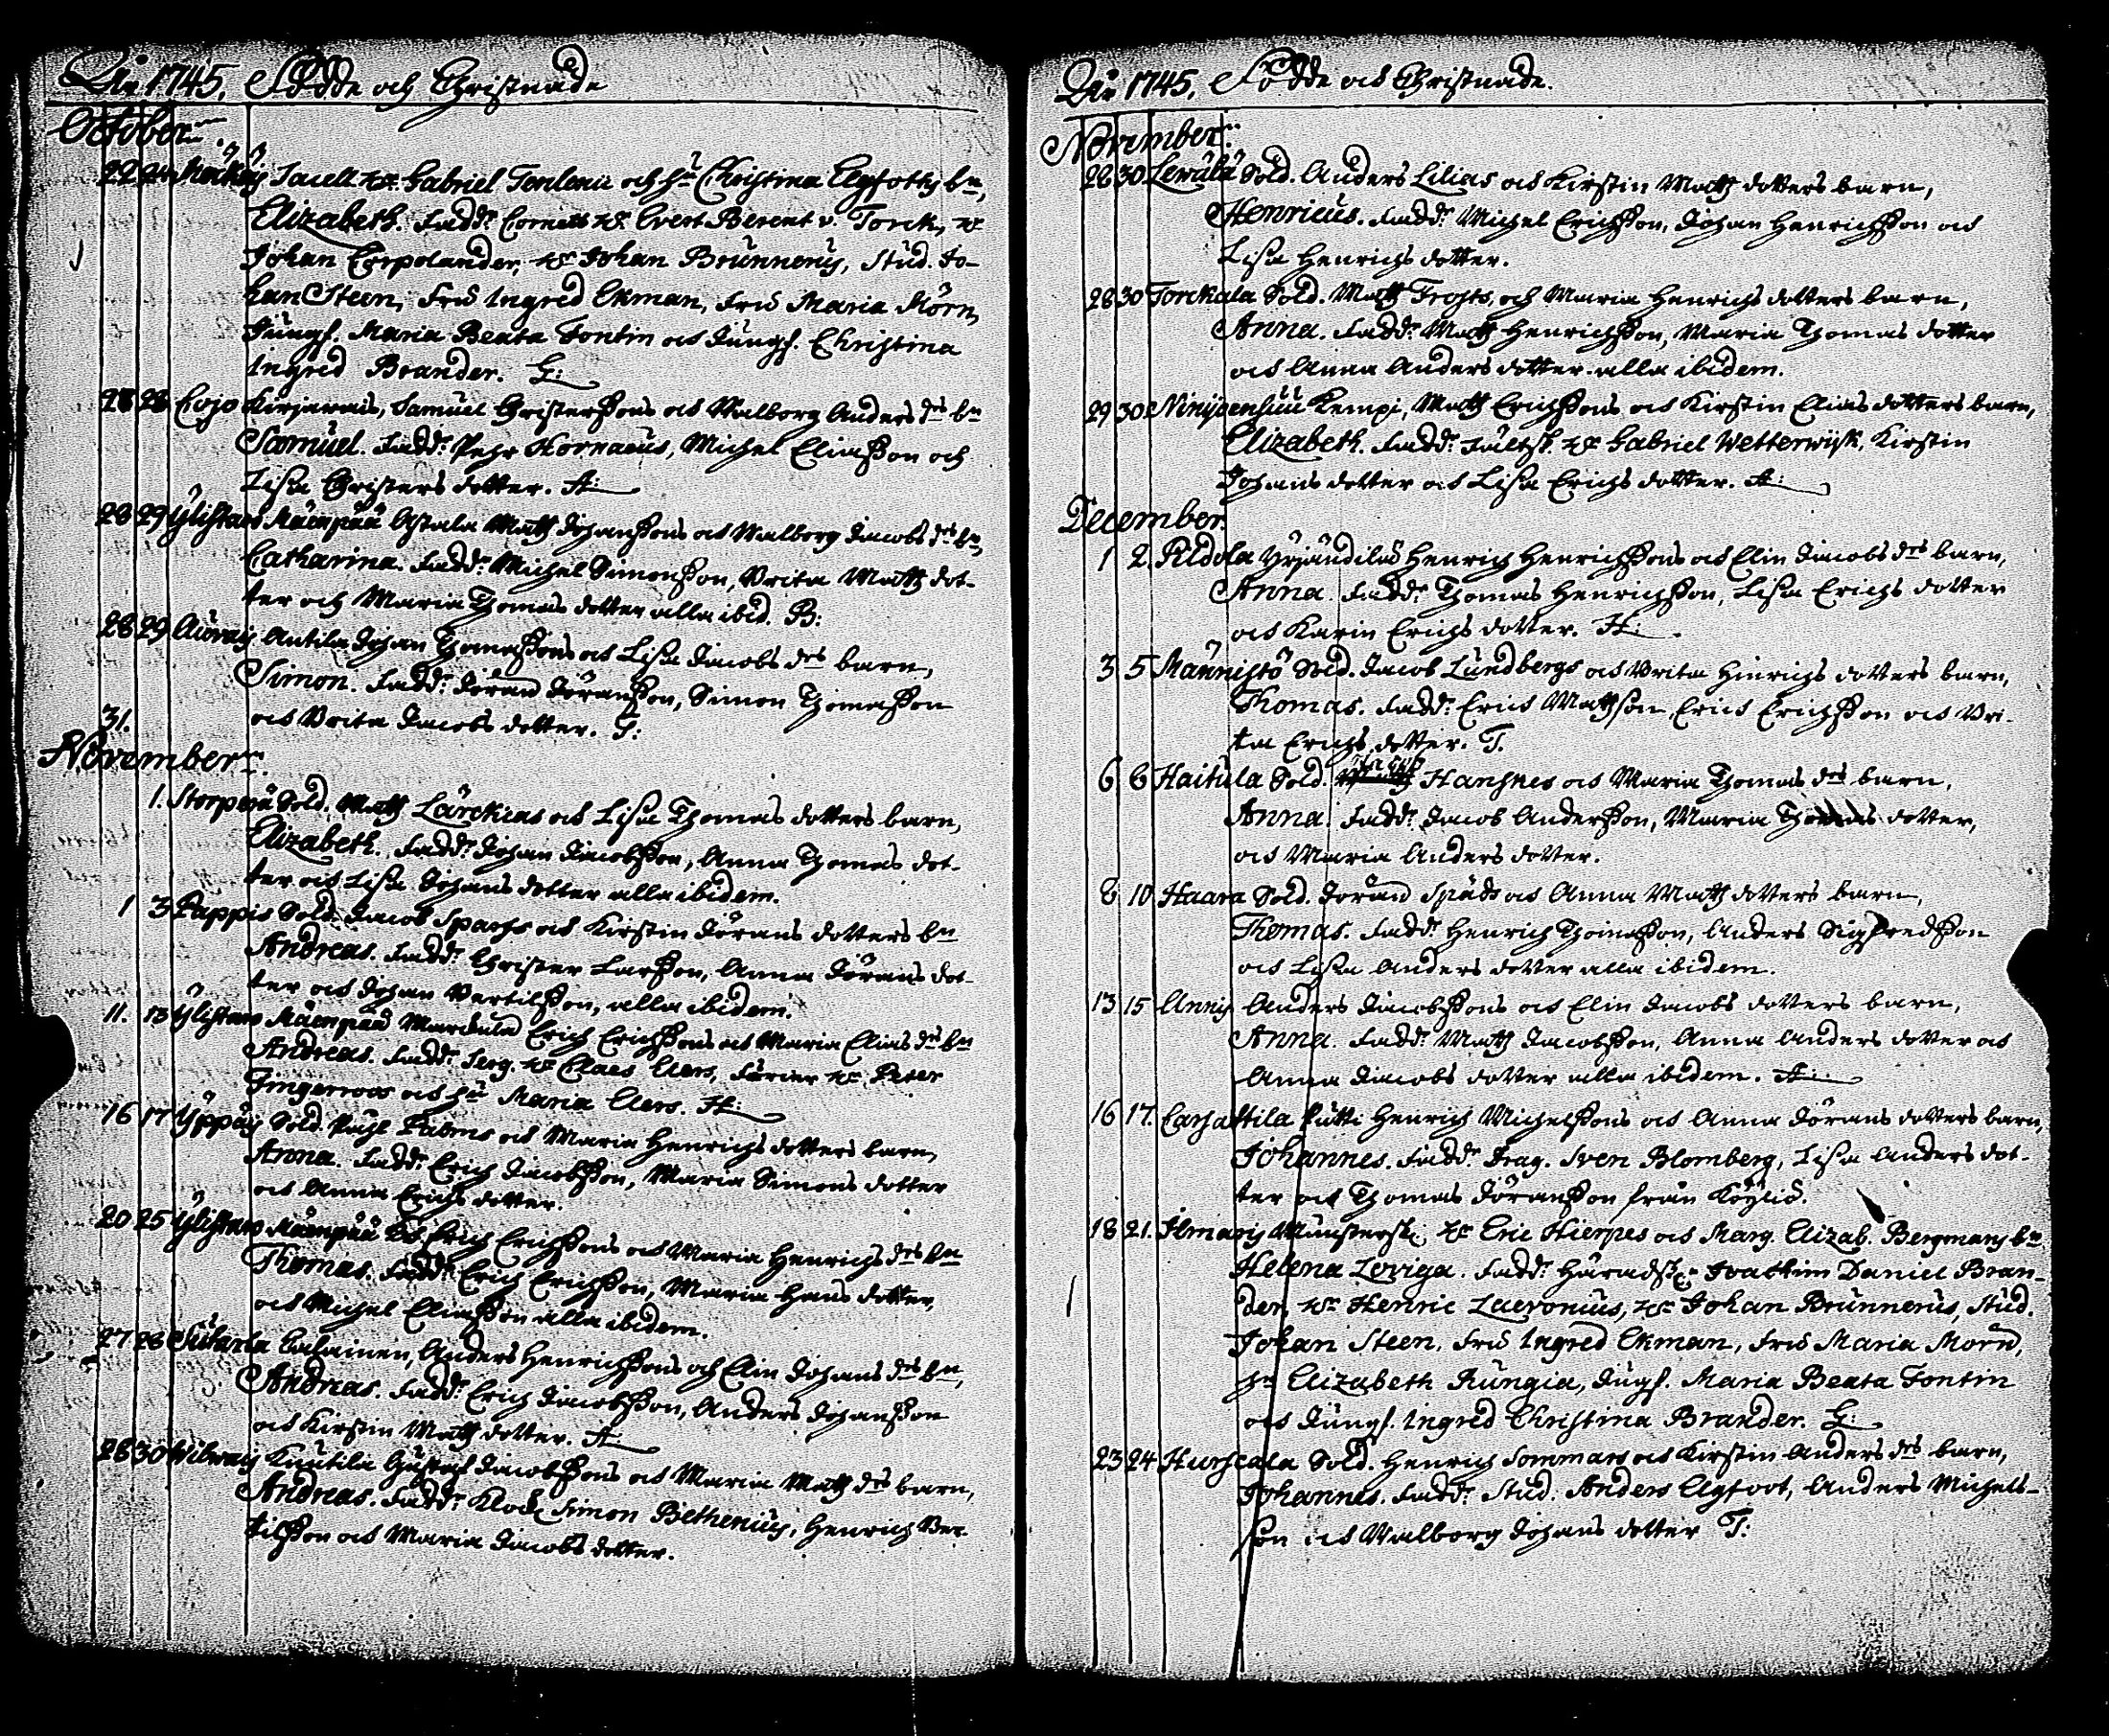 Åhr 1745. Födde och Christnade
October.
22 24 Sacell. Hr Gabriel Tenlenii och Hu Christina Elgfotts bn,
Elizabeth. Fadd. Cornett Hr Evert Berent v. Torck, Hr
Johan Corpolander, Hr Johan Brunnerus, Stud. Jo-
han Steen, Fru Ingred Ekman, Fru Maria Mörn,
Jungf. Maria Beata Fontin och Jungf. Christina
Ingred Brander. G:
28 28 Cojo Kirjavais, Samuel Christerssons och Walborg Anders drs bn
Samuel. Fadd. Pehr Hornaeus, Michel Eliasson och
Lisa Christers dotter. A:
28 29 Ylistaro Mäenpää Matts Johanssons och Walborg Jacobs drs bn,
Catharina. Fadd. Michel Simonsson, Brita Matts dot-
ter och Maria Thomas dotter alla ibid. B:
28 29 Antila Johan Thomassons och Lisa Jacobs drs barn,
Simon. Fadd. Jöran Jöransson, Simon Thomasson
31. och Brita Jacobs dotter. T:
November.
1. Storperä Sold. Matts Lärckias och Lisa Thomas dotters barn,
Elizabeth. Fadd. Johan Jacobsson, Anna Thomas dot-
ter och Lisa Johans dotter alla ibidem.
1 3 Pappis Sold. Jacob och Kirstin Jörans dotters bn
Andreas. Fadd. Christer Larsson, Anna Jörans dot-
ter och Johan Bertilsson, alla ibidem.
11. 13 Ylistaro Mäenpää Erich Erichssons och Maria Elias drs bn
Andreas. Fadd. Serg. Hr Claes Aers, Furier Hr Peter
Fingerroos och Hu Maria Aers. H:
16 17 Yppäis Sold. Påhl Palms och Maria Henrichs dotters barn,
Anna. Fadd. Erich Jacobsson, Maria Simons dotter
och Anna Erichs dotter.
20 25 Ylistaro Mäenpää Erich Erichssons och Maria Henrichs drs bn
Thomas. Fadd. Erich Erichsson, Maria Hans dotter,
och Michel Eliasson alla ibidem.
27 28 Anders Henrichssons och Elin Johans drs bn,
Andreas. Fadd. Erich Jacobsson, Anders Johansson
och Kirstin Matts dotter. A:
28 30 Kuutila Gustaf Jacobssons och Maria Matts drs barn,
Andreas. Fadd. Klock. Simon Bethenius, Henrich Ber-
tilsson och Maria Jacobs dotter.
Åhr 1745. Födde och Christnade.
November.
28 30 Lewälä Sold. Anders Lilias och Kirstin Matts dotters barn,
Henricus. Fadd. Michel Erichsson, Johan Henrichsson och
Lisa Henrichs dotter.
28 30 Torckala Sold. Matts Frosts, och Maria Henrichs dotters barn,
Anna. Fadd. Matts Henrichsson, Maria Thomas dotter
och Anna Anders dotter. alla ibidem.
29 30 Kempi, Matts Erichssons och Kirstin Elias dotters barn,
Elizabeth. Fadd. Fältsk. Hr Gabriel Wetterwijk, Kirstin
Johans dotter och Lisa Erichs dotter. A:
December.
1 2. Pildola Yrjändilä Henrich Henrichssons och Elin Jacobs drs barn,
Anna. Fadd. Thomas Henrichsson, Lisa Erichs dotter
och Karin Erichs dotter. H:
3 5 Männistö Sold. Jacob Lundbergs och Brita Hinrichs dotters barn,
Thomas. Fadd. Eric Mattsson, Eric Erichsson och Bri-
ta Erichs dotter. T.
6 6 Haitula Sold. Hanskes och Maria Thomas drs barn,
Anna. Fadd. Jacob Andersson, Maria Thomas dotter,
och Maria Anders dotter.
8 10 Haara Sold. Jöran Späds och Anna Matts dotters barn,
Thomas. Fadd. Henrich Thomasson, Anders Sigfredsson
och Lisa Anders dotter alla ibidem.
13 15 Annis Anders Jacobssons och Elin Jacobs dotters barn,
Anna. Fadd. Matts Jacobsson, Anna Anders dotter och
Anna Jacobs dotter alla ibidem. A:
16 17. Carhattila Putti Henrich Michelssons och Anna Jörans dotters barn,
Johannes. Fadd. Drag. Sven Blomberg, Lisa Anders dot-
ter och Thomas Jöransson från Köyliö.
18 21. Ilmaris Munstersk. Hr Eric Hierpes och Marg. Elizab. Bergmans bn
Helena Loviga. Fadd. Häradsk. Hr Joachim Daniel Bran-
der, Hr Henric Laevonius, Hr Johan Brunnerus, Stud.
Johan Steen, Fru Ingred Ekman, Fru Maria Mörn,
Hu Elizabeth Rungia, Jungf. Maria Beata Fontin
och Jungf. Ingred Christina Brander. G:
23 24 Hurscala Sold. Henrich Sommars och Kirstin Anders drs barn,
Johannes. Fadd. Stud. Anders Elgfoot, Anders Michels-
son och Walborg Johans dotter T: